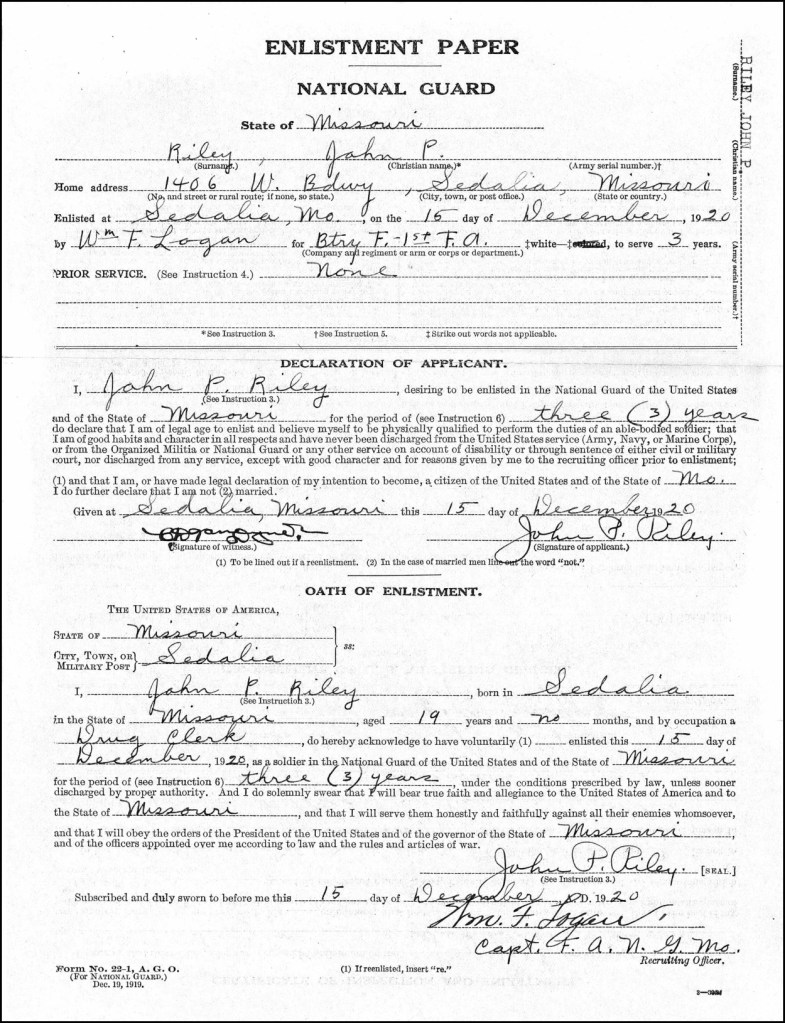 ENLISTMENT PAPER
NATIONAL GUARD
State of Missouri
Riley, John P.
(Surname.) (Christian name.)* (Army serial number.)†
Home address 1406 W. Bdwy, Sedalia, Missouri
(No. and street or rural route; if none, so state.) (City, town, or post office.) (State or country.)
Enlisted at Sedalia, Mo., on the 15 day of December, 1920
by Wm F. Logan for Btry F.-1st F.A. ‡white—‡colored, to serve 3 years.
(Company and regiment or arm or corps or department.)
PRIOR SERVICE. (See Instruction 4.) None
*See Instruction 3. †See Instruction 5. ‡Strike out words not applicable.
RILEY JOHN P.
(Surname.) (Christian name.) (Army serial number.)†
DECLARATION OF APPLICANT.
I, John P. Riley, desiring to be enlisted in the National Guard of the United States
(See Instruction 3.)
and of the State of Missouri for the period of (see Instruction 6) three (3) years
do declare that I am of legal age to enlist and believe myself to be physically qualified to perform the duties of an able-bodied soldier; that
I am of good habits and character in all respects and have never been discharged from the United States service (Army, Navy, or Marine Corps),
or from the Organized Militia or National Guard or any other service on account of disability or through sentence of either civil or military
court, nor discharged from any service, except with good character and for reasons given by me to the recruiting officer prior to enlistment;
(1) and that I am, or have made legal declaration of my intention to become, a citizen of the United States and of the State of Mo.
I do further declare that I am not (2) married.
Given at Sedalia, Missouri this 15 day of December 1920
John P. Riley.
(Signature of witness.) (Signature of applicant.)
(1) To be lined out if a reenlistment. (2) In the case of married men line out the word "not."
OATH OF ENLISTMENT.
THE UNITED STATES OF AMERICA,
STATE OF Missouri
CITY, TOWN, OR MILITARY POST } Sedalia } ss:
I, John P. Riley, born in Sedalia
(See Instruction 3.)
in the State of Missouri, aged 19 years and no months, and by occupation a
Drug Clerk, do hereby acknowledge to have voluntarily (1) enlisted this 15 day of
December, 1920, as a soldier in the National Guard of the United States and of the State of Missouri
for the period of (see Instruction 6) three (3) years, under the conditions prescribed by law, unless sooner
discharged by proper authority. And I do solemnly swear that I will bear true faith and allegiance to the United States of America and to
the State of Missouri, and that I will serve them honestly and faithfully against all their enemies whomsoever,
and that I will obey the orders of the President of the United States and of the governor of the State of Missouri,
and of the officers appointed over me according to law and the rules and articles of war.
John P. Riley. [SEAL.]
(See Instruction 3.)
Subscribed and duly sworn to before me this 15 day of December A.D. 1920
Wm. F. Logan,
Capt. F. A. N. G. Mo.
Recruiting Officer.
Form No. 22-1, A. G. O.
(FOR NATIONAL GUARD.)
Dec. 19, 1919.
(1) If reenlisted, insert "re."